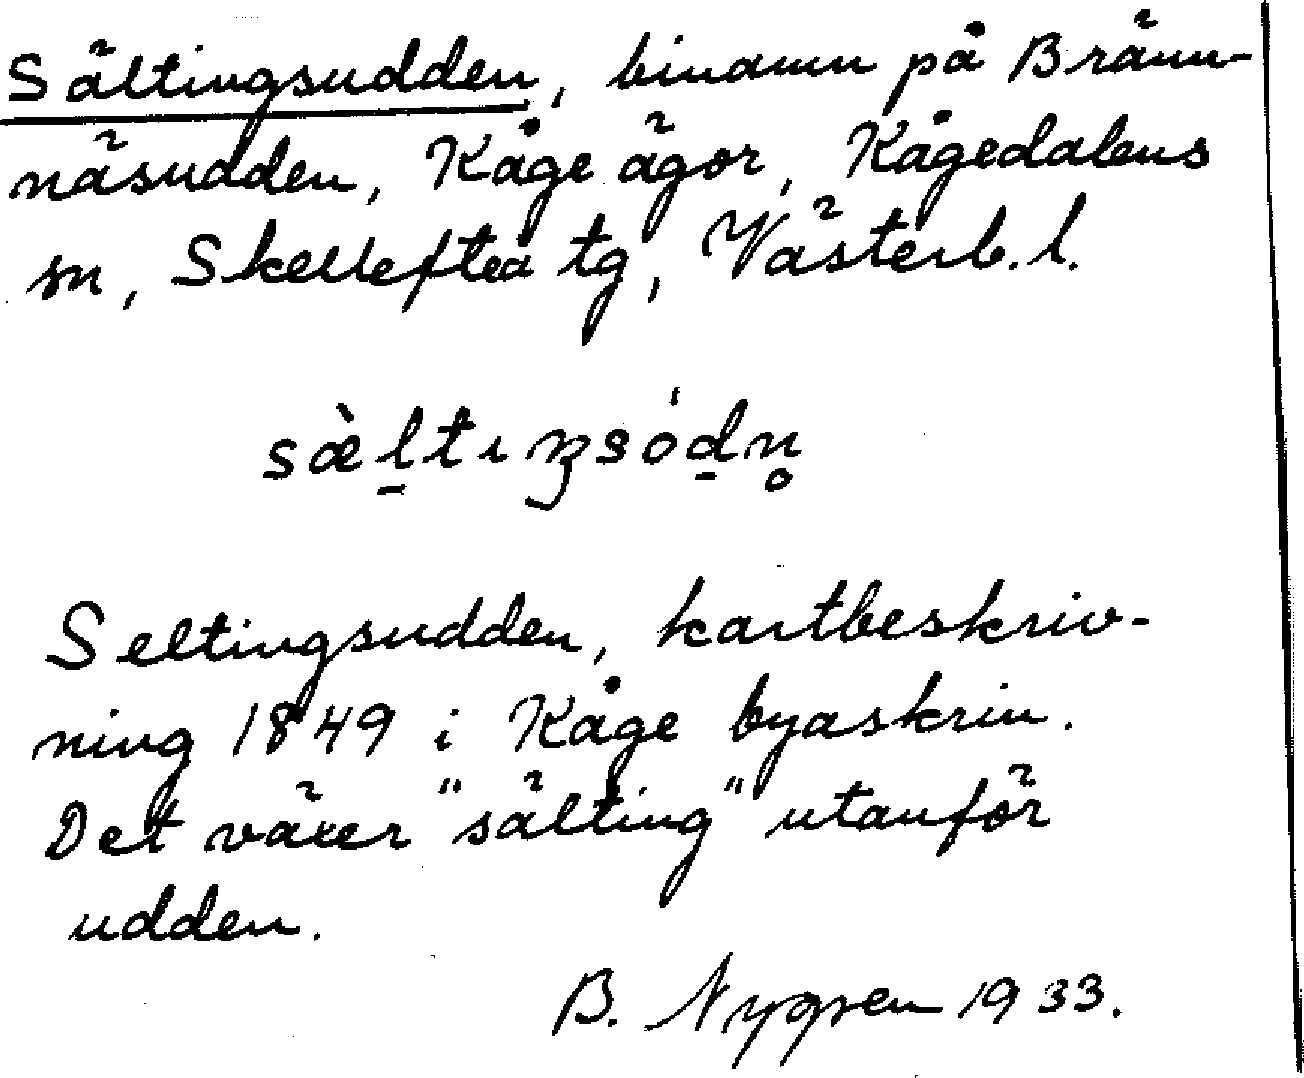 Sältingsudden, binamn på Bränn-
näsudden, Kåge ägor, Kågedalens
sn, Skellefteå tg, Västerb. l.
sæ̀l̠tıŋsód̠n̥
Seltingsudden, kartbeskriv-
ning 1849 i Kåge byaskrin.
Det växer "sälting" utanför
udden.
B. Nygren 1933.